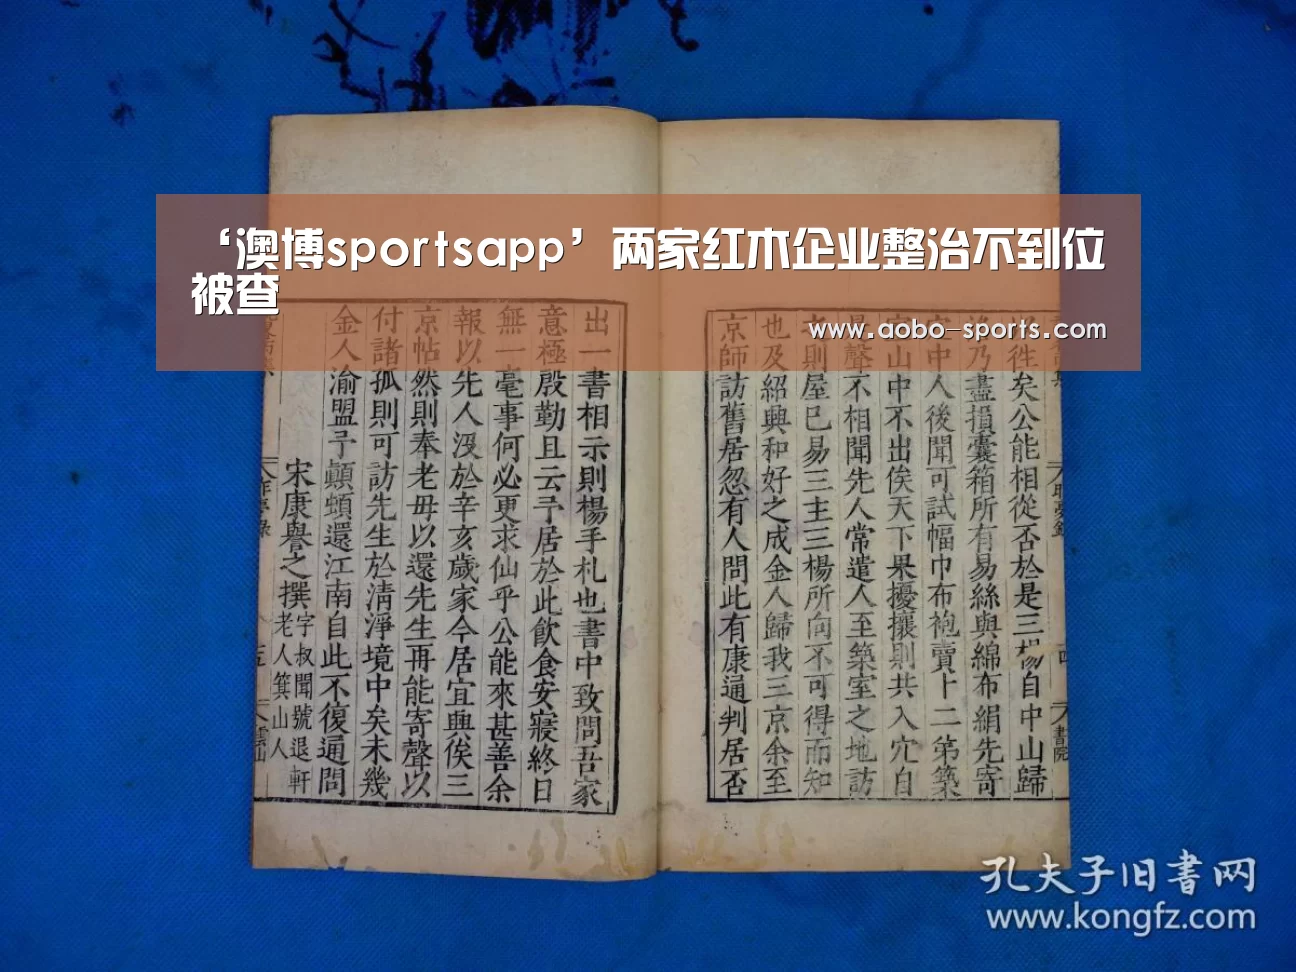 ‘澳博sportsapp’两家红木企业整治不到位
被查
www.aobo-sports.com
徃矣公能相從否於是三楊自中山歸
洛乃盡損囊箱所有易絲與綿布絹先寄
穴中人後聞可試幅巾布袍賣卜二第築
室山中不出俟天下果擾攘則共入穴自
是聲不相聞先人常遣人至築室之地訪
之則屋已易三主三楊所向不可得而知
也及紹興和好之成金人歸我三京余至
京師訪舊居忽有人問此有康通判居否
出一書相示則楊手札也書中致問吾家
意極殷勤且云予居於此飲食安寢終日
無一毫事何必更求仙乎公能來甚善余
報以先人沒於辛亥歲家今居宜興俟三
京帖然則奉老母以還先生再能寄聲以
付諸孤則可訪先生於清淨境中矣未幾
金人渝盟予顛頓還江南自此不復通問
宋康譽之撰字叔聞號退軒
老人箕山人
孔夫子旧書网
www.kongfz.com